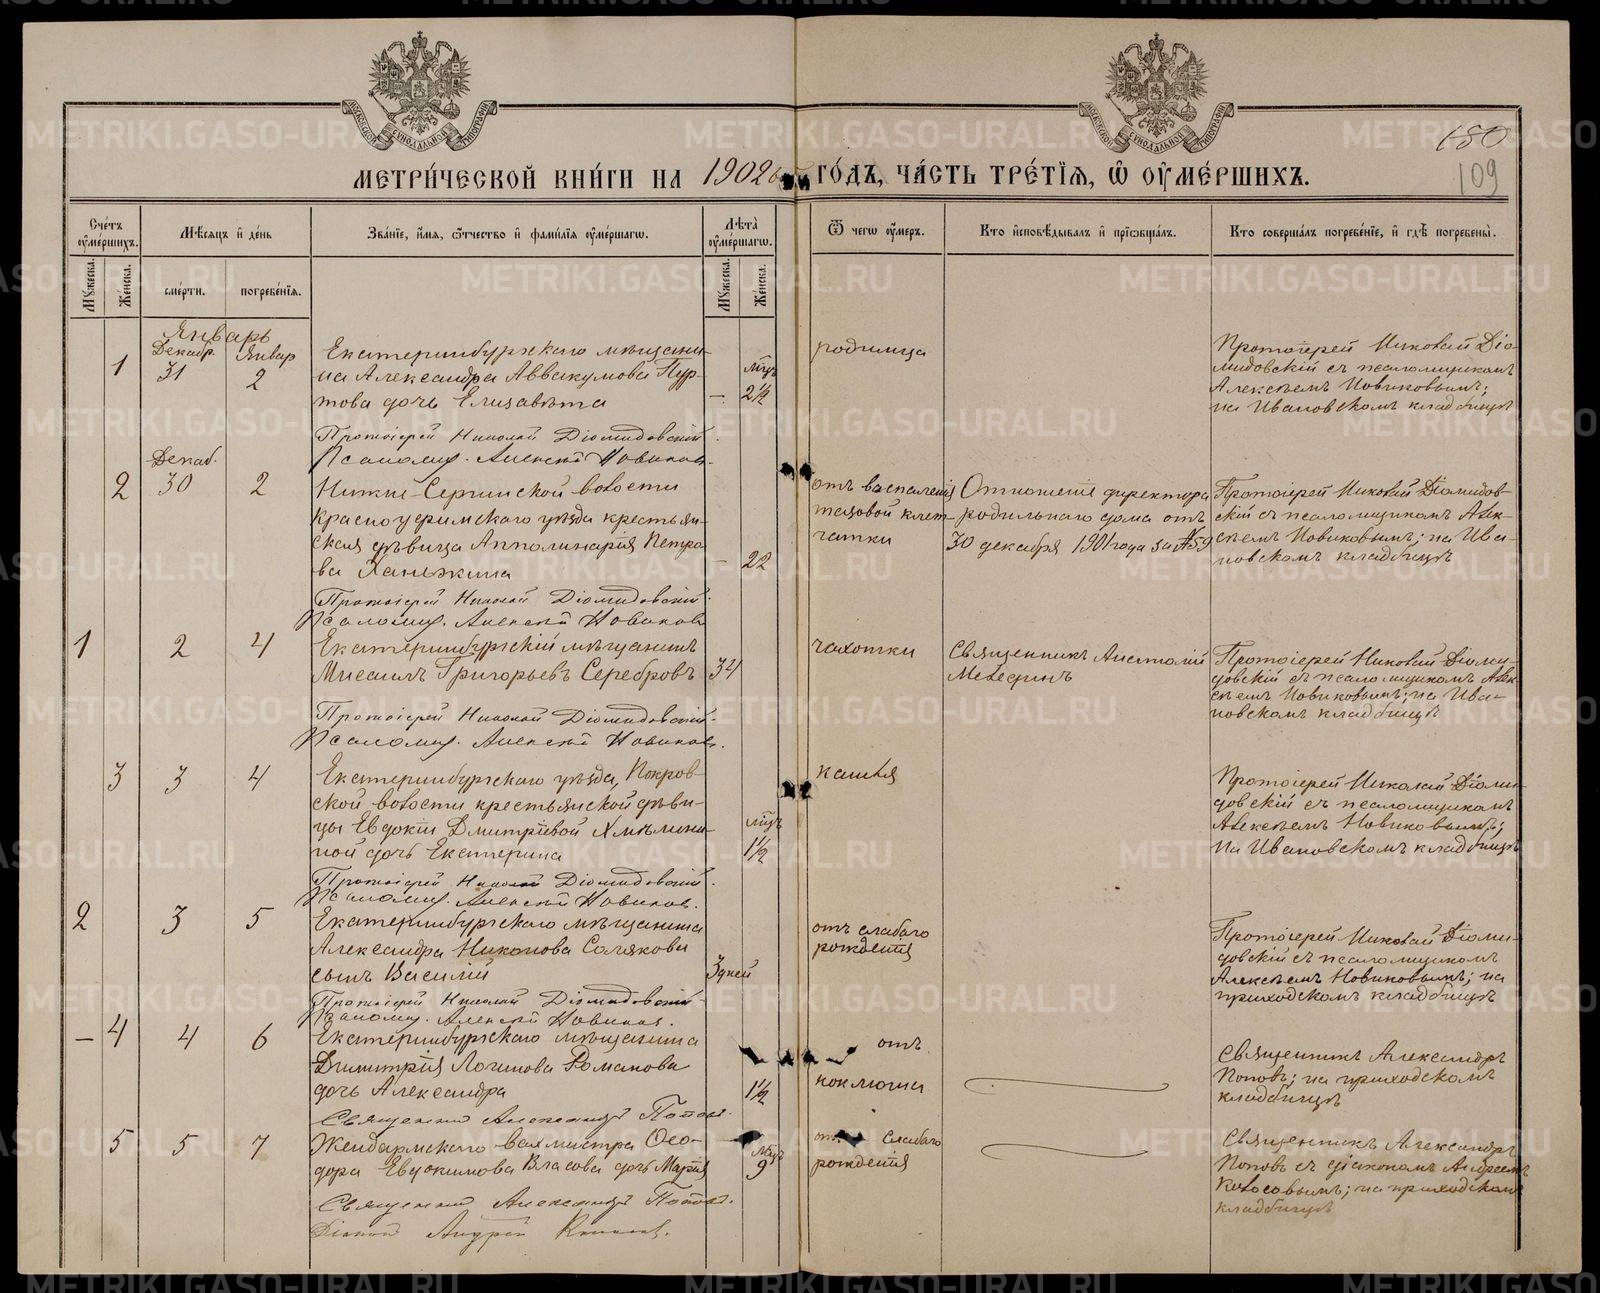 180
109
МЕТРИ́ЧЕСКОЙ КНИ́ГИ НА 1902 ГО́ДЪ, ЧА́СТЬ ТРЕ́ТЇѦ, Ѿ ОУМЕ́РШИХЪ.
Сче́тъ оуме́ршихъ.
Мѣ́сѧцъ и де́нь
Зва́нїе, и́мѧ, ѻ́тчество и фами́лїѧ оуме́ршагѡ.
Лѣ́та оуме́ршагѡ.
Ѿ чегѡ̀ оу́меръ.
Кто̀ и҆сповѣ́дывалъ и҆ прїѡбща́лъ.
Кто̀ соверша́лъ погребе́нїе, и҆ гдѣ̀ погребены̀.
Мꙋ́жеска.
Же́нска.
сме́рти.
погребе́нїѧ.
Мꙋ́жеска.
Же́нска.
Январь
1
Декабр. 31
Январ 2
Екатеринбургскаго мѣщани-
на Александра Аввакумова Пур-
това дочь Елизавѣта
мѣц.
— 2½
родимца
Протоіерей Николай Діо-
мидовскій съ псаломщикомъ
Алексѣемъ Новиковымъ;
на Ивановскомъ кладбищѣ
Протоіерей Николай Діомидовскій.
Псаломщ. Алексѣй Новиковъ.
2
Декаб. 30
2
Нижне-Сергинской волости
Красноуфимскаго уѣзда крестьян-
ская дѣвица Апполинарія Петро-
ва Ханжина
22
отъ воспаленія
тазовой клет-
чатки
Отношеніе директора
родильнаго дома отъ
30 декабря 1901 года за №59
Протоіерей Николай Діомидов-
скій съ псаломщикомъ Алек-
сѣемъ Новиковымъ; на Ива-
новскомъ кладбищѣ
Протоіерей Николай Діомидовскій.
Псаломщ. Алексѣй Новиковъ
1
2
4
Екатеринбургскій мѣщанинъ
Мисаилъ Григорьевъ Серебровъ
34
чахотки
Священникъ Анатолій
Мелединъ
Протоіерей Николай Діоми-
довскій съ псаломщикомъ Алек-
сѣемъ Новиковымъ; на Ива-
новскомъ кладбищѣ
Протоіерей Николай Діомидовскій.
Псаломщ. Алексѣй Новиковъ.
3
3
4
Екатеринбургскаго уѣзда, Покров-
ской волости крестьянской дѣви-
цы Евдокіи Дмитріевой Хмѣлини-
ной дочь Екатерина
мѣцъ
1½
кашля
Протоіерей Николай Діоми-
довскій съ псаломщикомъ
Алексѣемъ Новиковымъ;
на Ивановскомъ кладбищѣ
Протоіерей Николай Діомидовскій.
Псаломщ. Алексѣй Новиковъ.
2
3
5
Екатеринбургскаго мѣщанина
Александра Никонова Солякова
сынъ Василій
3 дней
отъ слабаго
рожденія
Протоіерей Николай Діоми-
довскій съ псаломщикомъ
Алексѣемъ Новиковымъ; на
приходскомъ кладбищѣ
Протоіерей Николай Діомидовскій
Псаломщ. Алексѣй Новиковъ.
— 4
4
6
Екатеринбургскаго мѣщанина
Димитрія Логинова Романова
дочь Александра
1½
отъ
коклюша
Священникъ Александръ
Поповъ; на приходскомъ
кладбищѣ
Священникъ Александръ Поповъ.
5
5
7
Жендармскаго вахмистра Ѳео-
дора Евдокимова Власова дочь Марія
мѣц.
9
отъ слабаго
рожденія
Священникъ Александръ
Поповъ съ діакономъ Андреемъ
Колосовымъ; на приходскомъ
кладбищѣ
Священникъ Александръ Поповъ.
Діаконъ Андрей Колосовъ.
METRIKI.GASO-URAL.RU